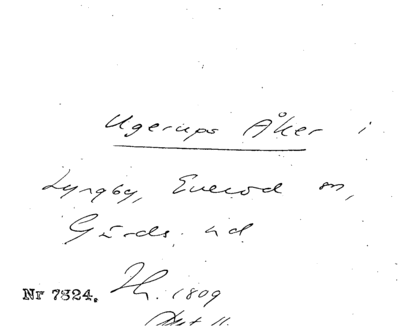 Ugerups Åker i
Lyngby, Everöd sn,
Gärds hd
Nr 7824. Jh. 1809
Akt 11.